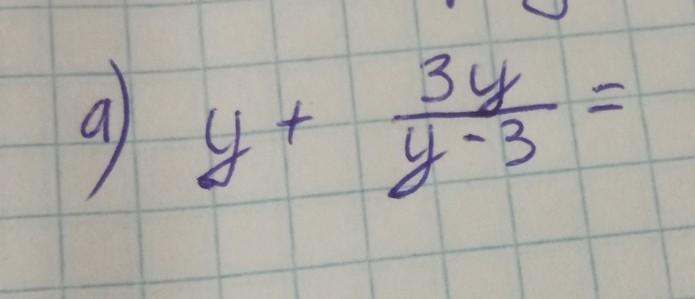 а) y + \frac{3y}{y-3} =